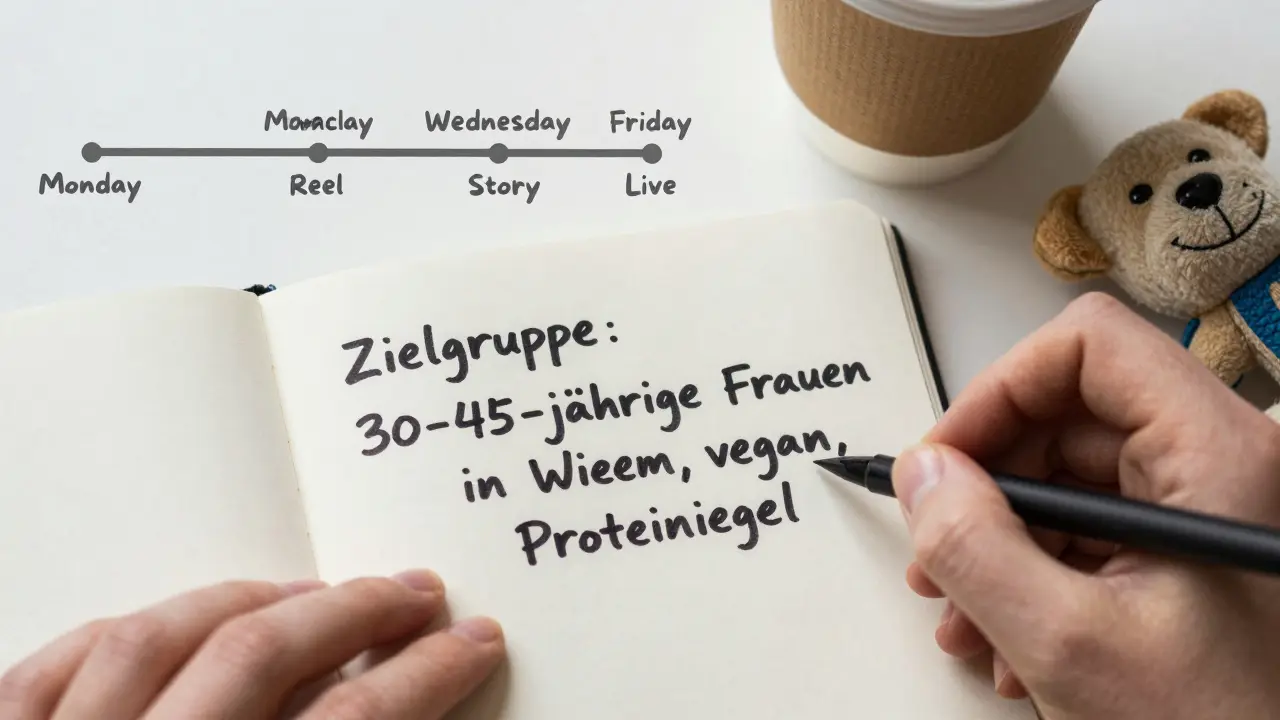 Momclay Wednesday Friday
Monday Reel Story Live
Zielgruppe:
30-45-jährige Frauen
in Wieem, vegan,
Proteiniegel